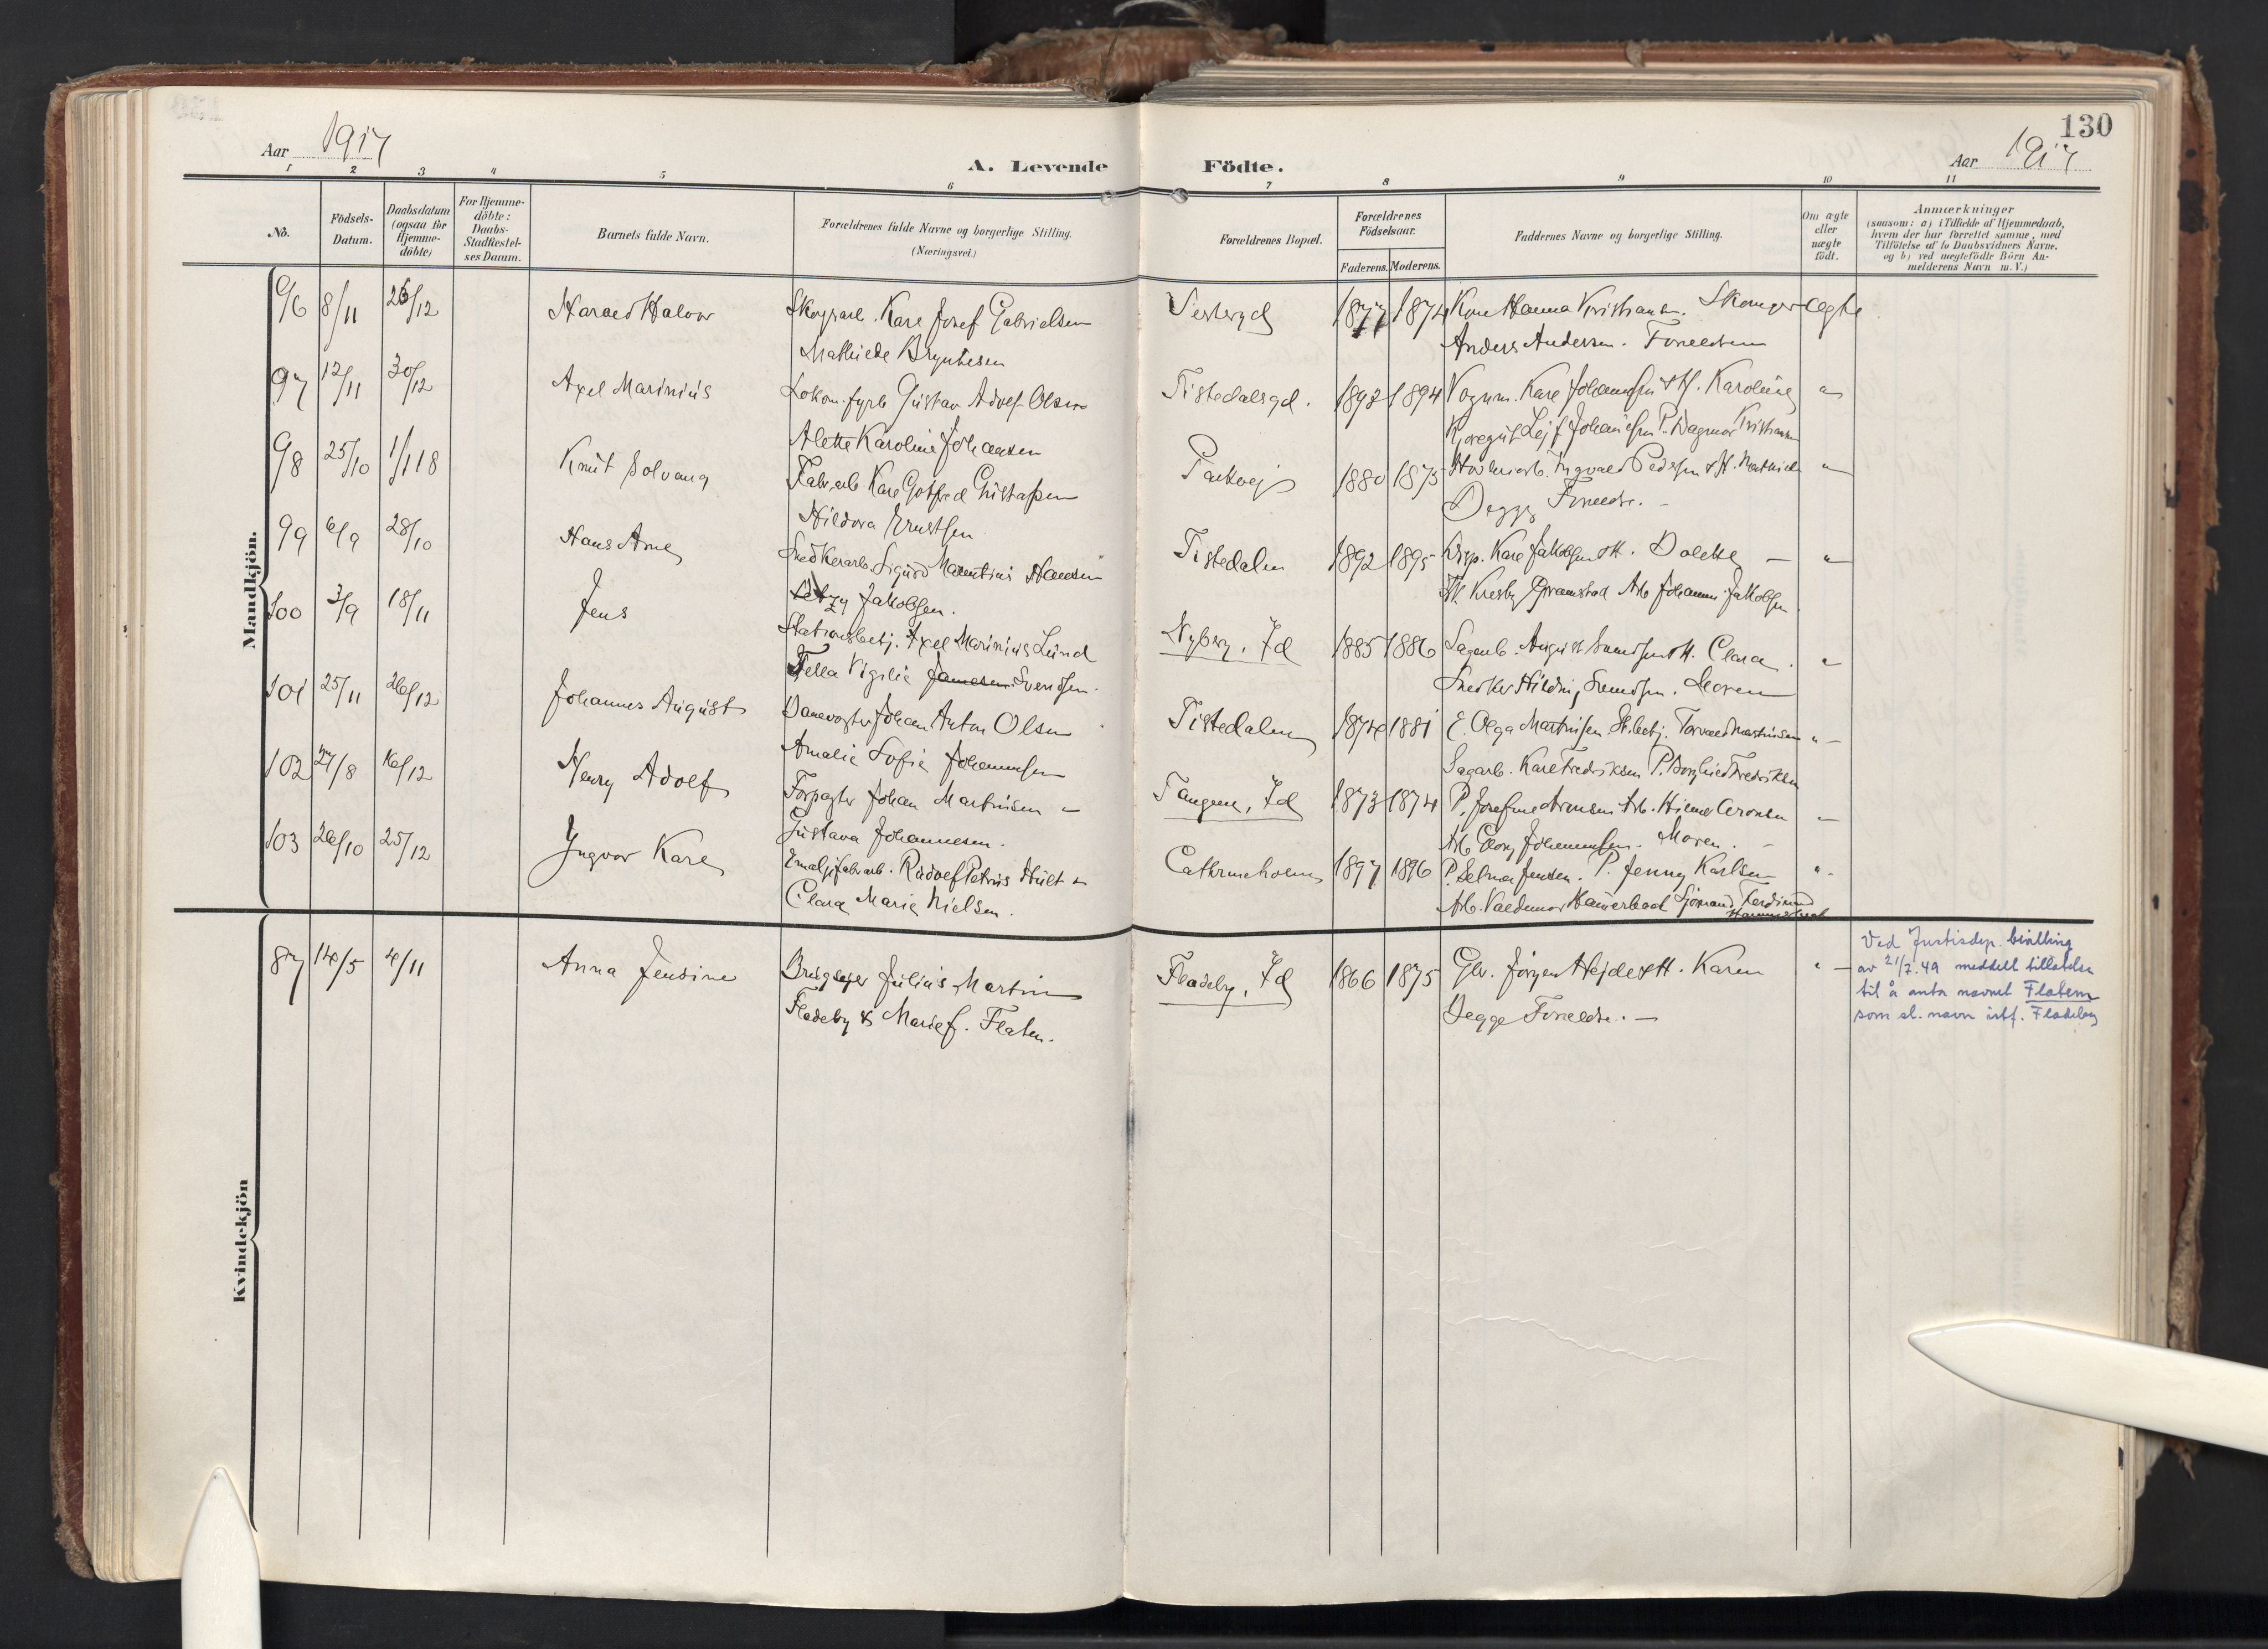 130
Aar 1917
A. Levende Födte.
Aar 1917
1 2 3 4 5 6 7 8 9 10 11
No.
Födsels-Datum.
Daabsdatum (ogsaa for Hjemme-döbte)
For Hjemme-döbte: Daabs-Stadfæstel-ses Datum.
Barnets fulde Navn.
Forældrenes fulde Navne og borgerlige Stilling. (Næringsvei.)
Forældrenes Bopæl.
Forældrenes Födselsaar.
Faderens. Moderens.
Faddernes Navne og borgerlige Stilling.
Om ægte eller uægte födt.
Anmærkninger
(saasom: a) i Tilfælde af Hjemmedaab, hvem der har forrettet samme, med Tilföielse af to Daabsvidners Navne, og b) ved uægtefödte Börn An-melderens Navn m. V.)
Mandkjön.
96 8/11 26/12 Harald Halvor Skogsarb. Karl Josef Gabrielsen 1877 1874 Kone Hanna Kristiansen. ægte
Mathilde Bryntesen Anders Andersen. Foreldrene
97 12/11 30/12 Axel Marinius Lokom. fyrb. Gustav Adolf Olsen Tistedalsgd. 1892 1894 Vognm. Karl Johannesen & H. Karoline "
Alette Karoline Johansen Leif Johansen P. Dagmar Kristiansen
98 25/10 1/1 18 Knut Solvang Fabr.arb. Karl Gotfred Gustafsen Parkvej 1880 1875 Ingvald Pedersen & H. Mathilde "
Hildora Ernstsen Begge Foreldre. -
99 6/9 28/10 Hans Arne Snedkerarb. Sigurd Marentius Hansen Tistedalen 1892 1895 Karl Jakobsen & H. Dolette - "
Jakobsen. Arb. Johannes Jakobsen
100 3/9 18/11 Jens Stationsbetj. Axel Marinius Lund Nyberg, Id 1885 1886 Sagarb. August Svendsen & H. Clara. "
Vigilie Jamesen Svendsen. Snedker Hilding Svendsen. Moren
101 25/11 26/12 Johannes August Banevogter Johan Anton Olsen Tistedalen 1874 1881 E. Olga Martinsen St.betj. Torvald Martinsen " -
Amalie Sofie Johannesen Sagarb. Karl Fredriksen P. Borghild Fredriksen
102 27/8 16/12 Henry Adolf Forpagter Johan Martinsen " Tangene, Id 1873 1874 P. Josefine Aronsen Arb. Hilmer Aronsen "
Gustava Johannesen. Arb. Georg Johannesen. Moren. -
103 26/10 25/12 Ingvar Karl Emaljefabr.arb. Rudolf Petrus Hult " Cathrineholm 1897 1896 P. Selma Jensen. P. Jenny Karlsen " -
Clara Marie Nielsen. Arb. Valdemar Hammerbeck Sjömand Ferdinand Hammerbeck
Kvindekjön
87 14/5 4/11 Anna Jensine Brugsejer Julius Martin Fladeby, Id 1866 1875 Gbr. Jörgen Hejde & H. Karen " -
Fladeby & Marie f. Flaten. Begge Foreldre. -
Ved Justisdep. bevilling
av 21/7.49 meddelt tillatelse
til å anta navnet Flatem
som sl. navn istf. Fladeby